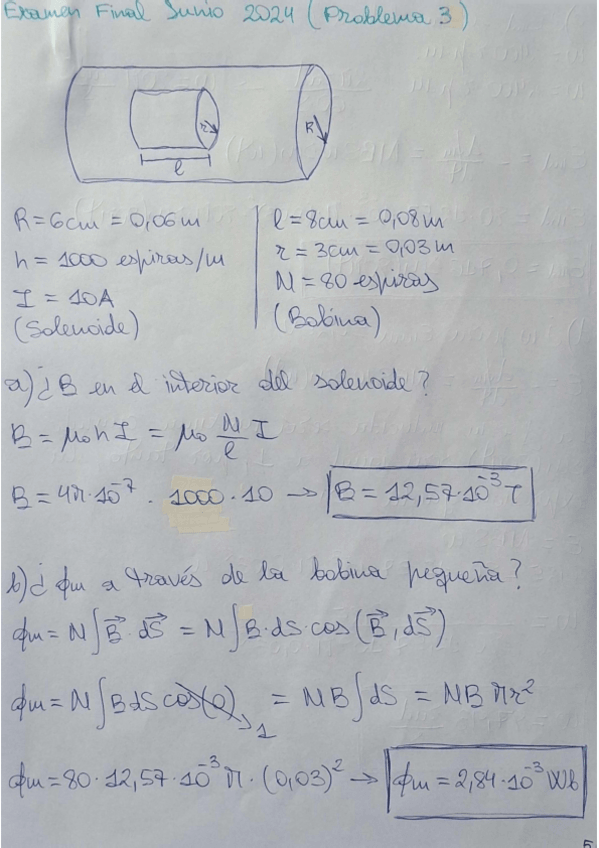 Examen Final Junio 2024 (Problema 3)
r
R
l
R = 6cm = 0,06m
n = 1000 espiras/m
I = 10A
(Solenoide)
l = 8cm = 0,08m
r = 3cm = 0,03m
N = 80 espiras
(Bobina)
a) ¿B en el interior del solenoide?
B = μ₀nI = μ₀ N/l I
B = 4π·10⁻⁷ · 1000·10 → B = 12,57·10⁻³ T
b) ¿ϕm a través de la bobina pequeña?
ϕm = N∫B⃗·dS⃗ = N∫B·dS·cos(B⃗,dS⃗)
ϕm = N∫BdS cos(0) 1 = NB∫dS = NBπr²
ϕm = 80·12,57·10⁻³π·(0,03)² → ϕm = 2,84·10⁻³ Wb
5